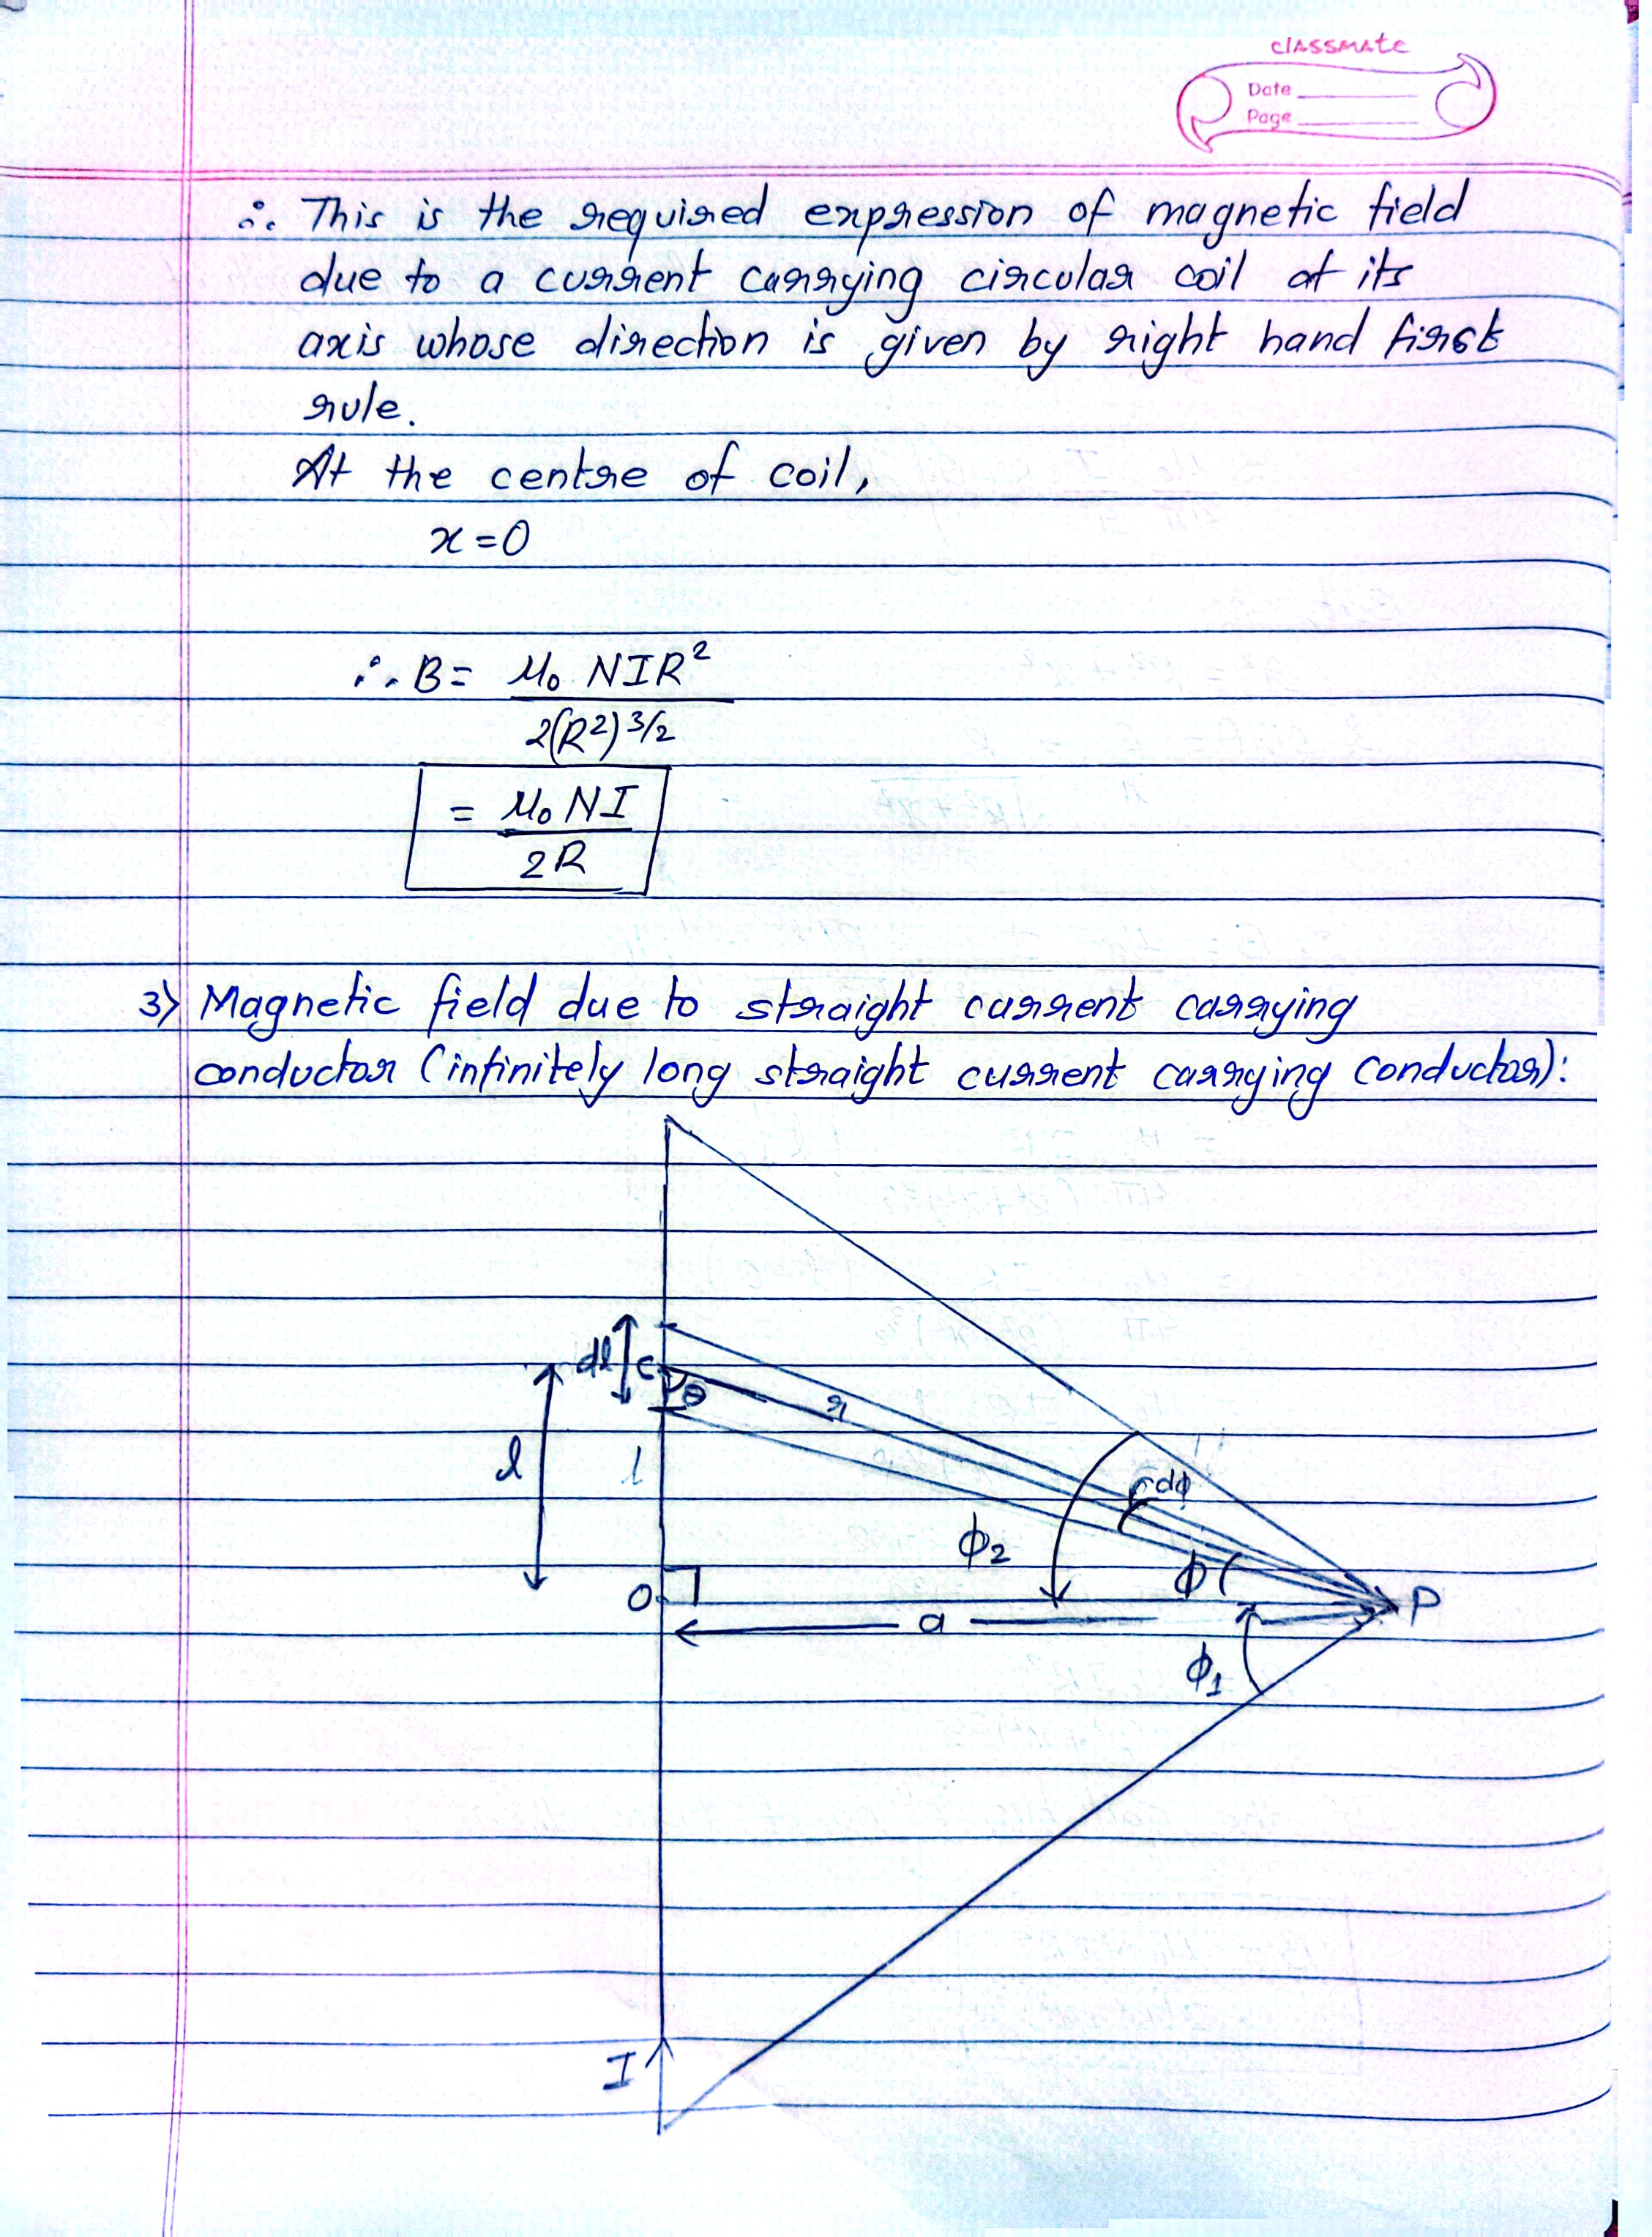 classmate
Date
Page
∴ This is the required expression of magnetic field
due to a current carrying circular coil at its
axis whose direction is given by right hand first
rule.
At the centre of coil,
x=0
∴ B = μ₀ NIR²
2(R²)^3/2
= μ₀ NI
2R
3) Magnetic field due to straight current carrying
conductor (infinitely long straight current carrying conductor):
dl
C
θ
r
l
l
dϕ
ϕ₂
ϕ
O
a
P
ϕ₁
I